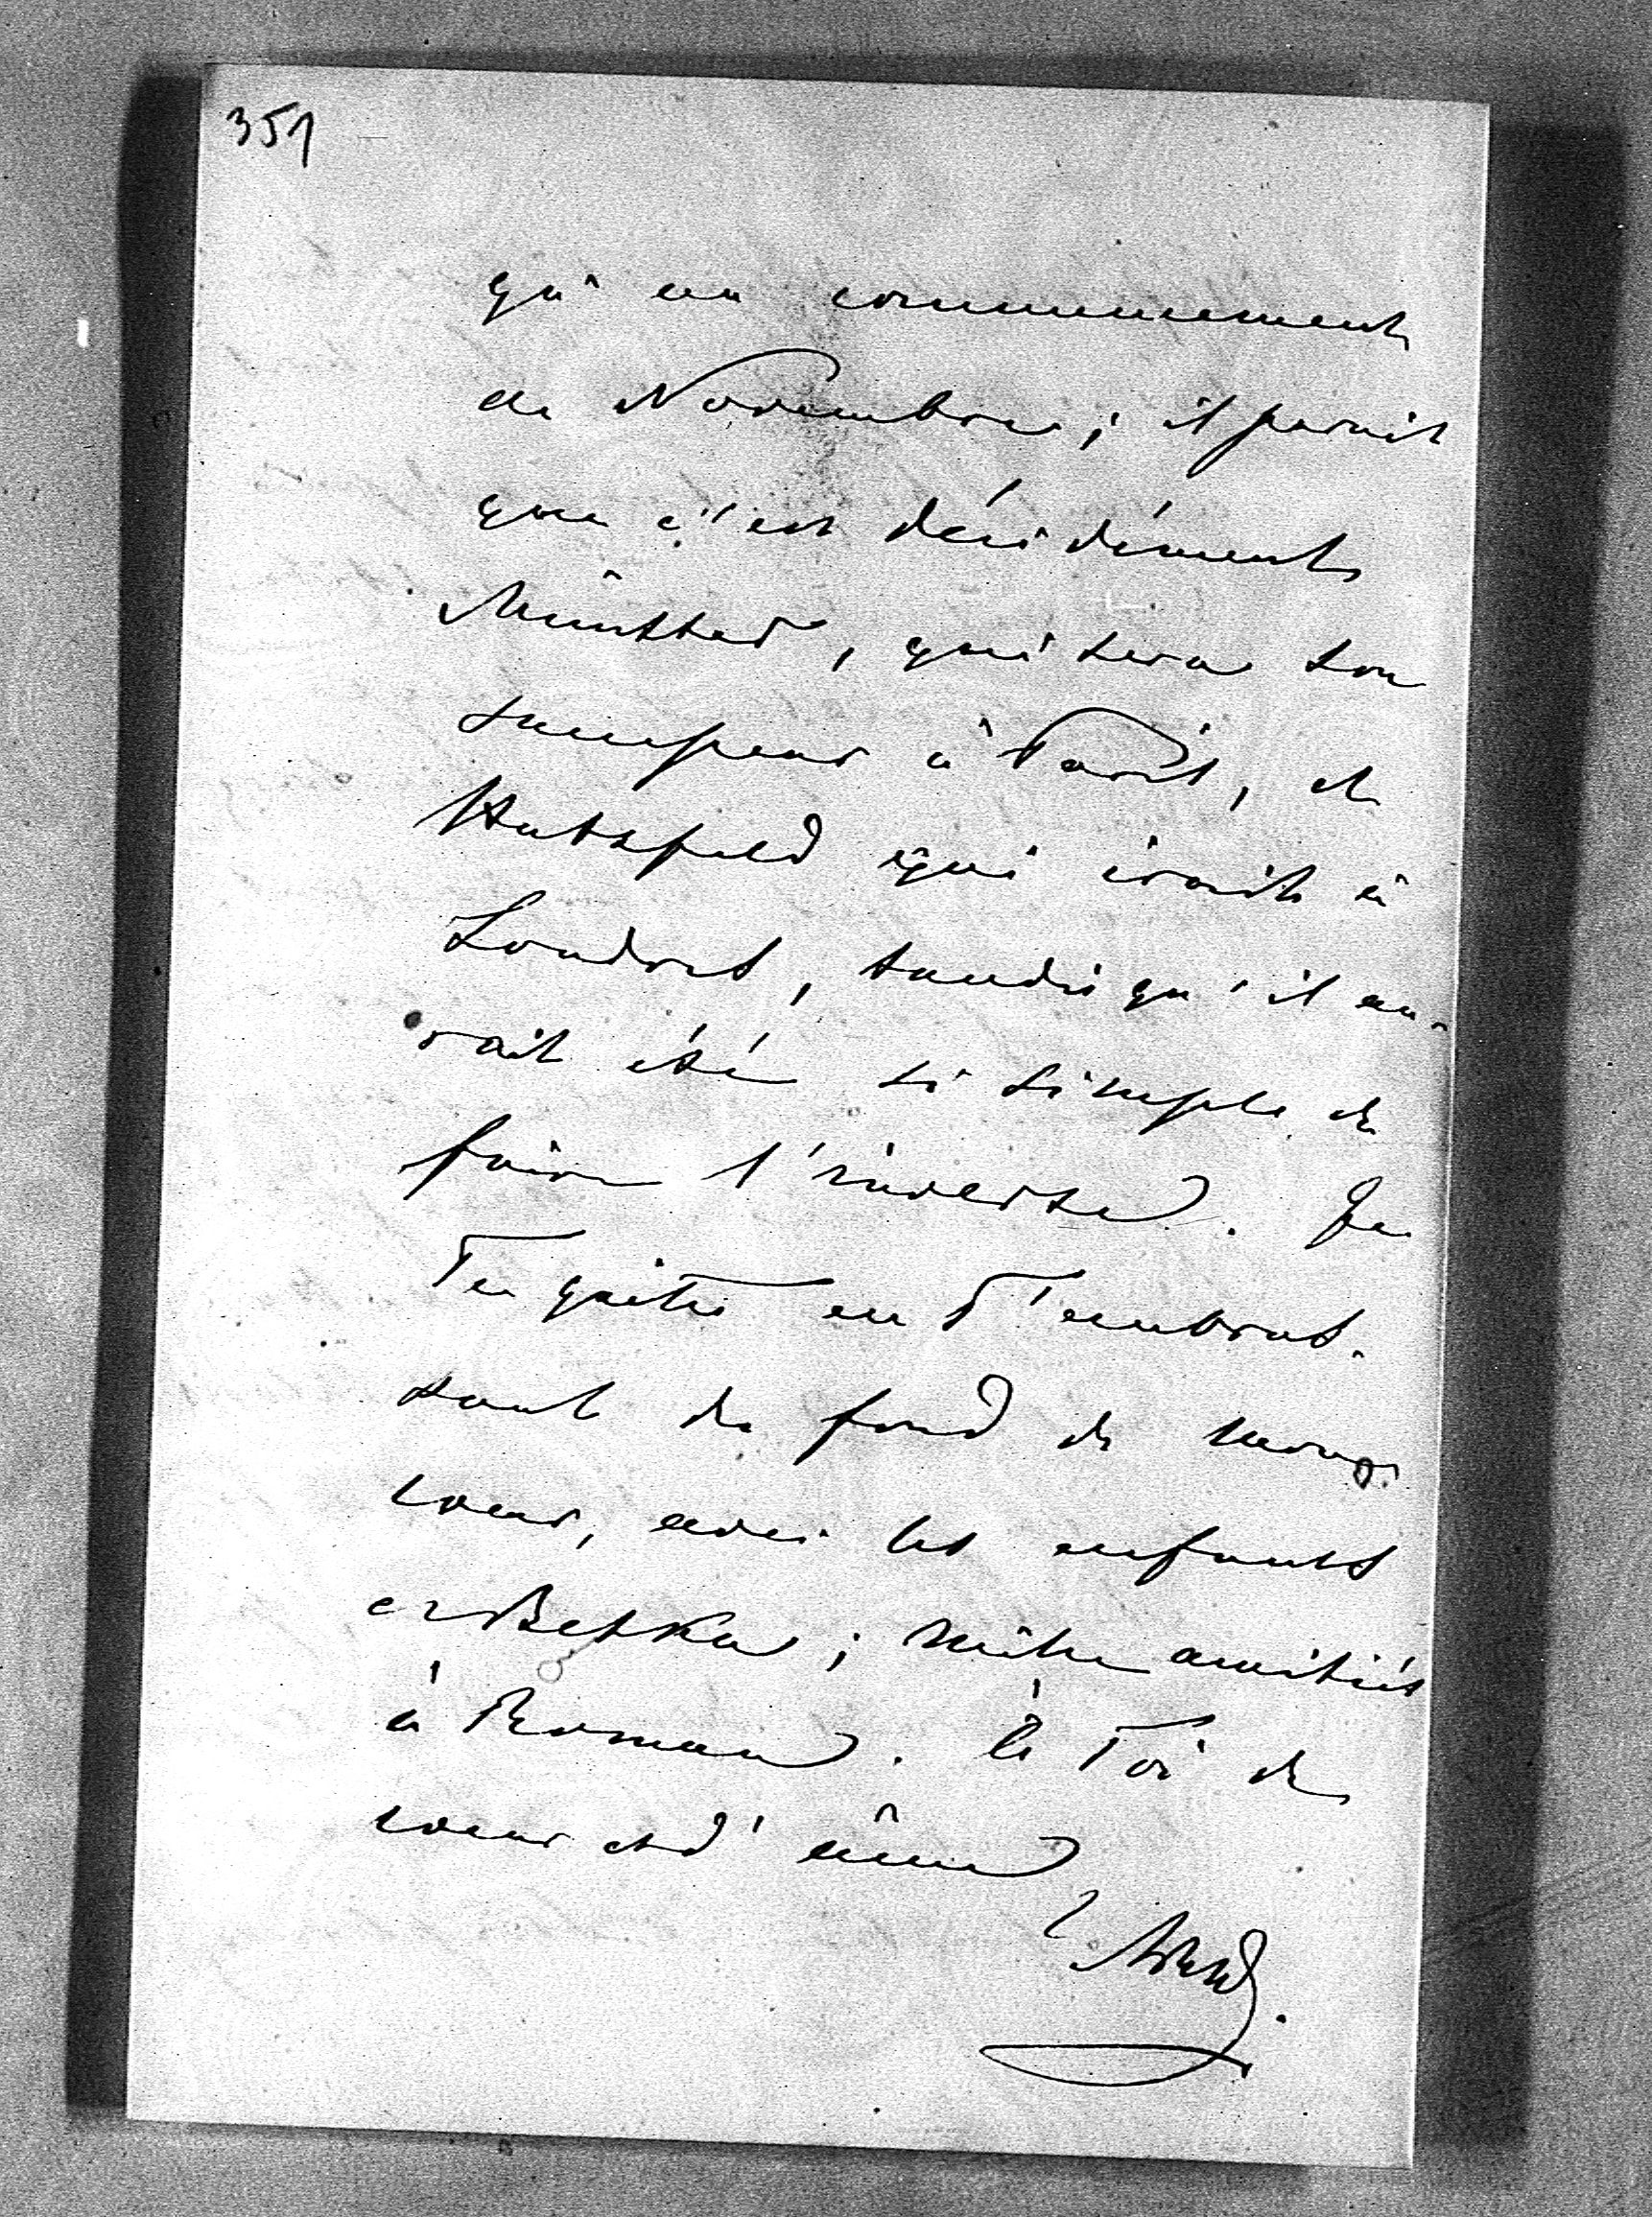 351
qu'au commencement
de Novembre; il parait
que c'est décidément
Münster, qui sera son
successeur à Paris, et
Hatzfeld qui irait à
Londres, tandis qu'il au-
rait été si simple de
faire l'inverse. Je
Te quitte en T'embras-
sant du fond de mon
coeur, avec les enfants
et Betka; mille amitiés
à Roman. à Toi de
coeur et d'âme